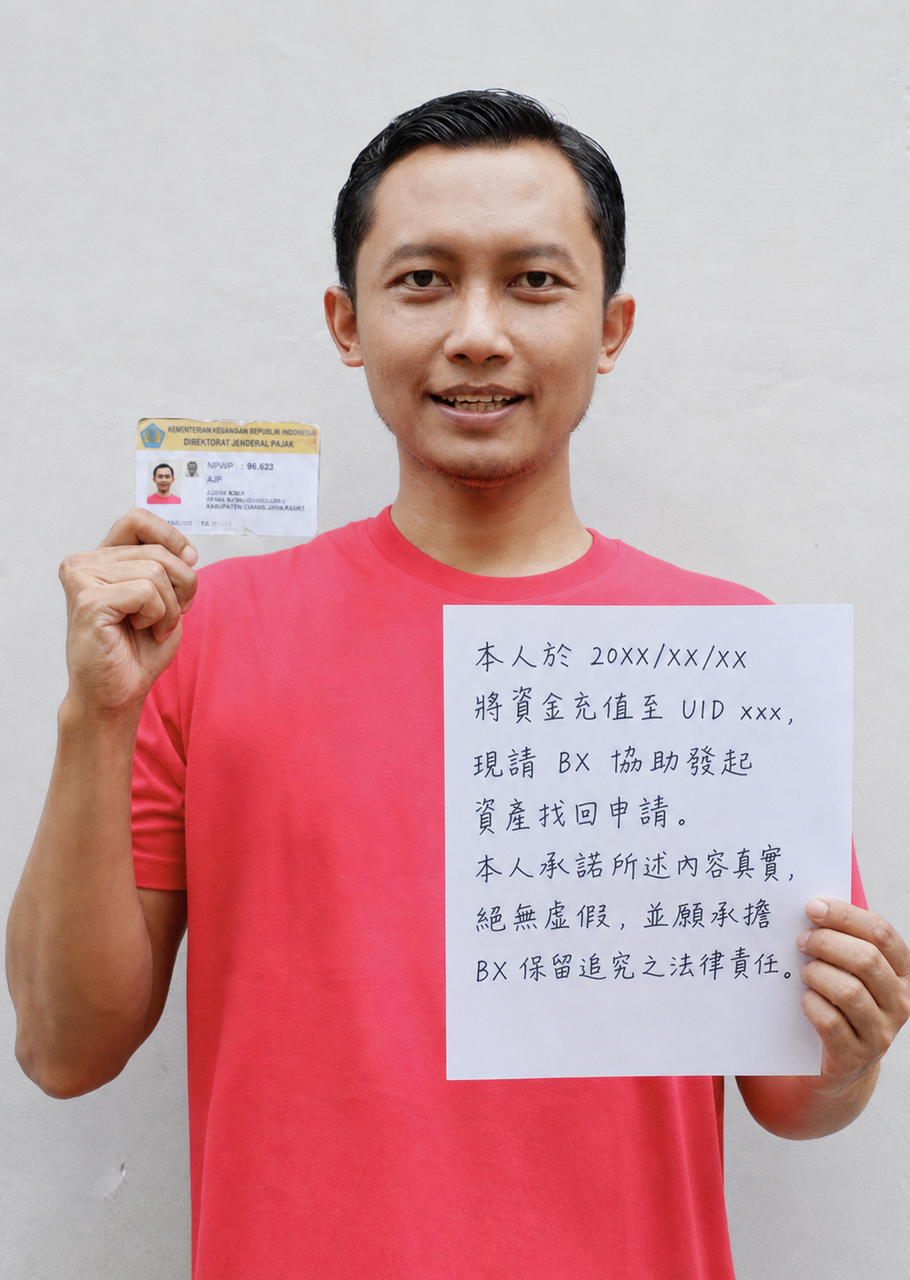 KEMENTERIAN KEUANGAN REPUBLIK INDONESIA
DIREKTORAT JENDERAL PAJAK
NPWP : 96.623
AJP
KABUPATEN
本人於 20XX/XX/XX
將資金充值至 UID xxx,
現請 BX 協助發起
資產找回申請。
本人承諾所述內容真實,
絕無虛假, 並願承擔
BX 保留追究之法律責任。